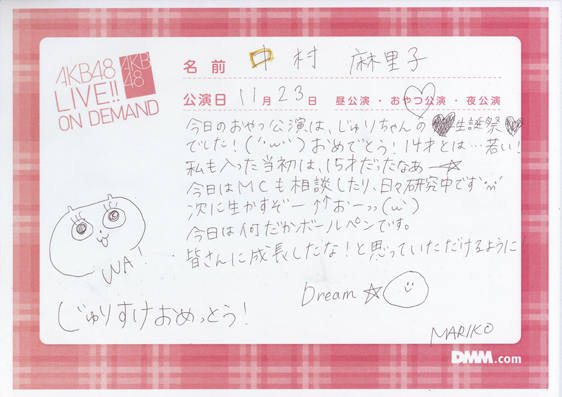 AKB48
LIVE!!
ON DEMAND
AKB
48
名前 中村 麻里子
公演日 11月23日 昼公演・おやつ公演・夜公演
今日のおやつ公演は、じゅりちゃんの♥生誕祭♥
でした!(´・ω・`)おめでとう!14才とは…若い!
私も入った当初は、15才だったなあー☆
今日はMCも相談したり、日々研究中です^^
次に生かすぞー↑↑おーっっ(ω)
今日は何だかボールペンです。
皆さんに成長したな!と思っていただけるように!
Dream☆
WA!
じゅりすけおめっとう!
MARIKO
DMM.com